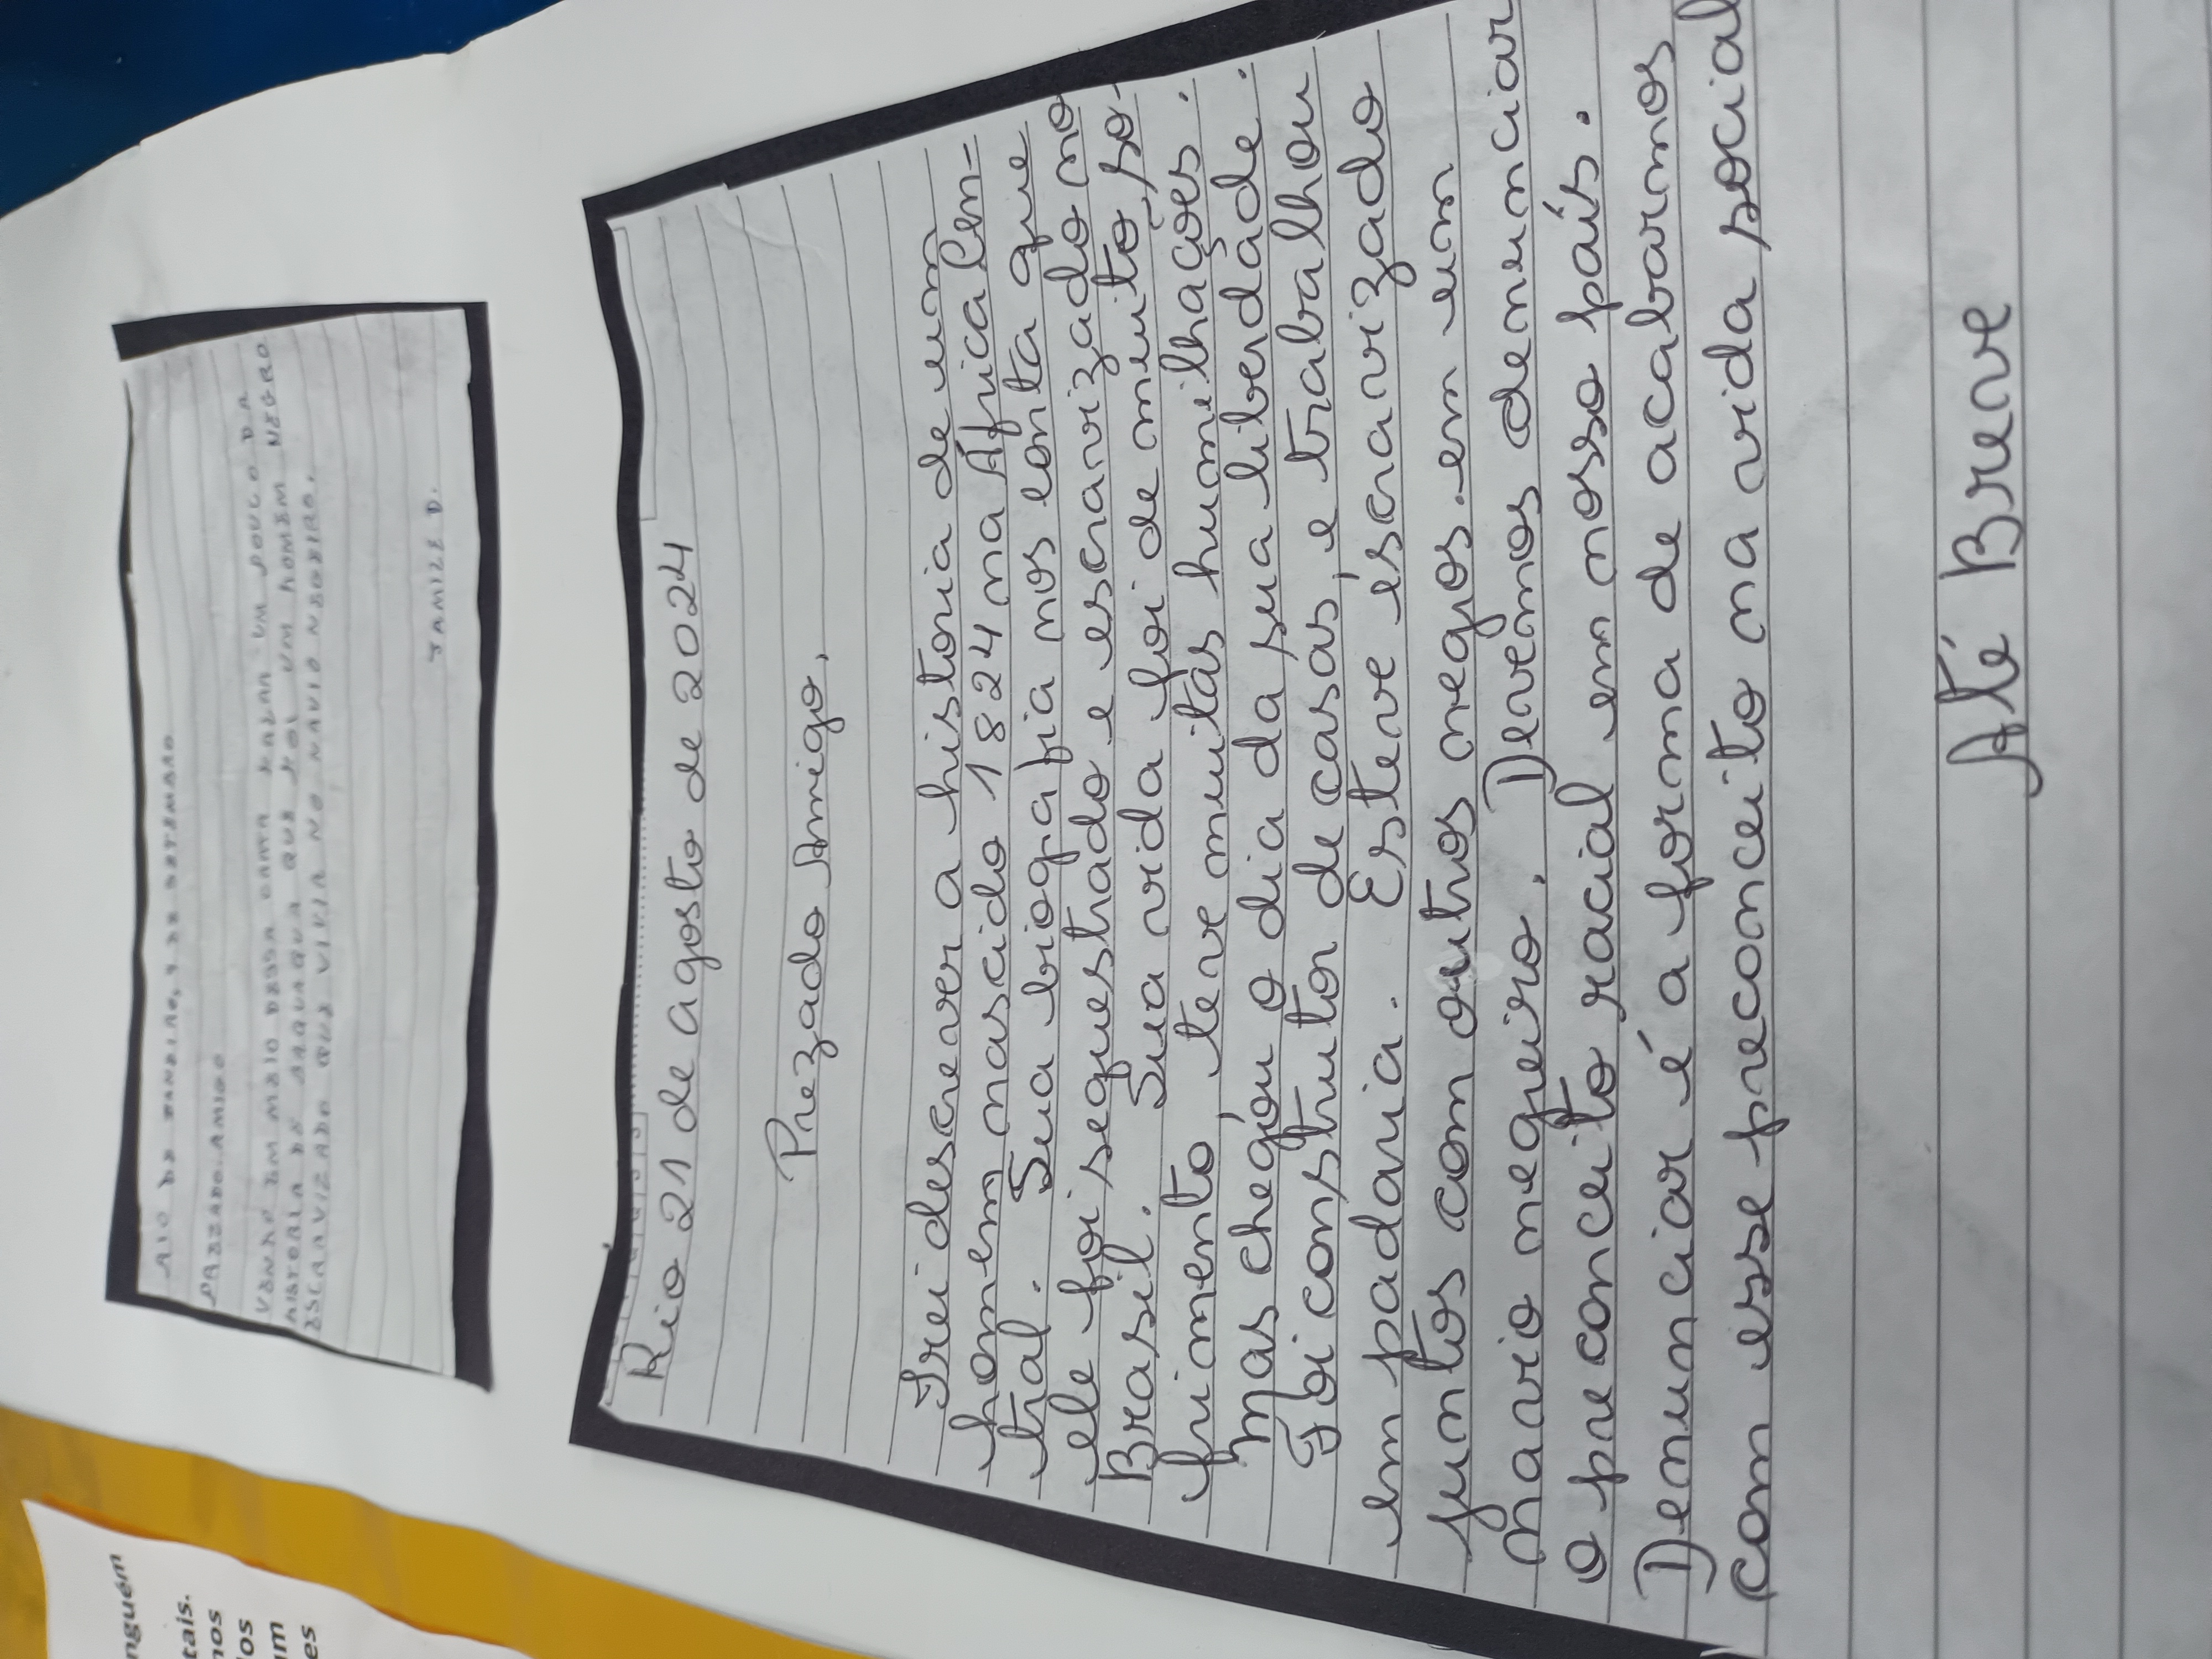 nguém
tais.
nos
los
um
es
RIO DE JANEIRO, 4 DE SETEMBRO
PREZADO AMIGO
VENHO EM MEIO DESSA CARTA FALAR UM POUCO DA
HISTORIA DE BAQUAQUA QUE FOI UM HOMEM NEGRO
ESCRAVIZADO QUE VIVIA NO NAVIO NEGREIRO.
JAMILE D.
Rio 21 de agosto de 2024
Prezado Amigo,
Irei descrever a historia de um
homem nascido 1824 na África Cen=
tral. Sua biografia nos conta que
ele foi sequestrado e escravizado no
Brasil. Sua vida foi de muito so-
frimento, teve muitas humilhações.
Mas chegou o dia da sua liberdade.
Foi construtor de casas, e trabalhou
em padaria. Esteve escravizado
juntos com outros negros.em um
navio negreiro. Devemos denunciar
o preconceito racial em nosso país.
Denunciar é a forma de acabarmos
com esse preconceito na vida social
Até Breve